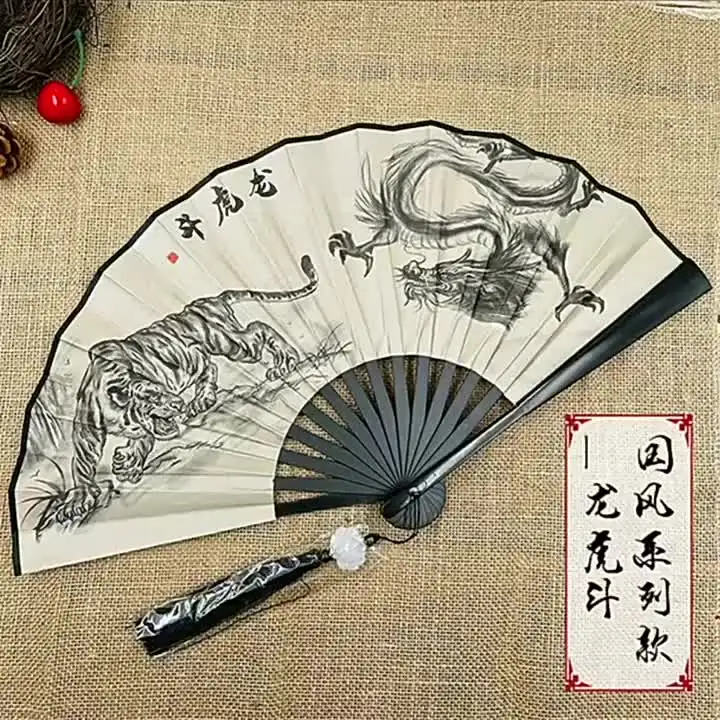 龙虎斗
国风系列款
—龙虎斗